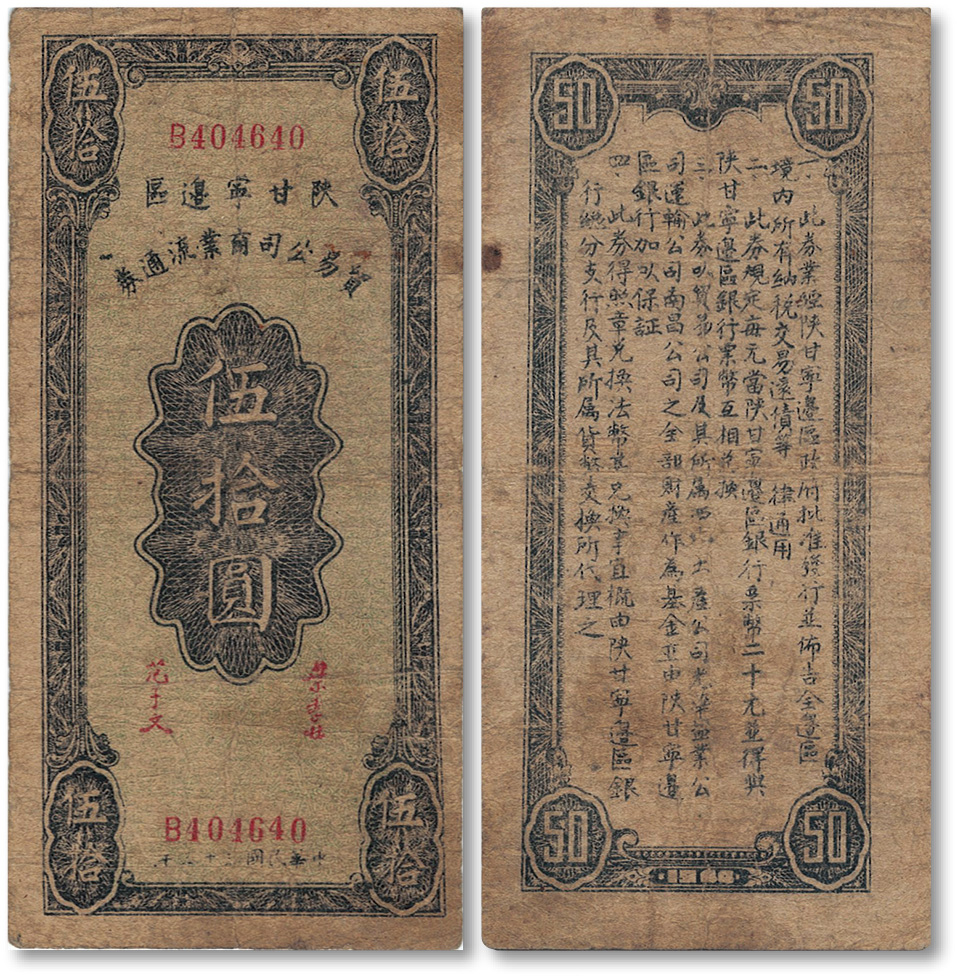 伍拾
伍拾
B404640
陝甘寧邊區
貿易公司商業流通券
伍拾圓
范子文
B404640
中華民國三十三年
伍拾
伍拾
50
50
一、此券業經陝甘寧邊區政府批准發行並佈告全邊區
境內所有納稅交易還債等 律通用
二、此券規定每元當陝甘寧邊區銀行票幣二十元並得與
陝甘寧邊區銀行票幣互相兌換
三、此券以貿易公司及其所屬 土產公司 業公
司運輸公司南昌公司之全部財產作為基金並由陝甘寧邊
區銀行加以保証
四、此券得照章兌換法幣其兌換事宜概由陝甘寧邊區銀
行總分支行及其所屬貨幣交換所代理之
50
50